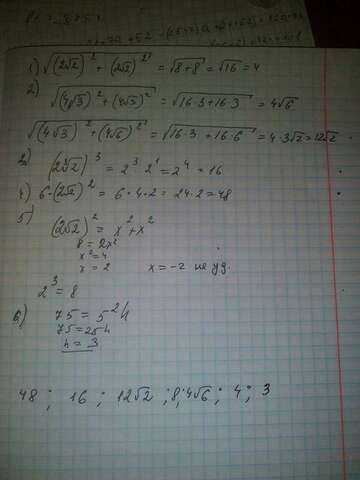 1) √((2√2)² + (2√2)²) = √(8+8) = √16 = 4
2)
√((4√3)² + (4√3)²) = √(16·3+16·3) = 4√6
√((4√3)² + (4√6)²) = √(16·3+16·6) = 4·3√2 = 12√2
3) (2∛2)³ = 2³·2¹ = 2⁴ = 16
4) 6·(2√2)² = 6·4·2 = 24·2 = 48
5)
(2√2)² = x² + x²
8 = 2x²
x² = 4
x = 2 x = -2 не уд.
2³ = 8
6) 75 = 5²h
75 = 25h
h = 3
48 ; 16 ; 12√2 ; 8; 4√6 ; 4 ; 3